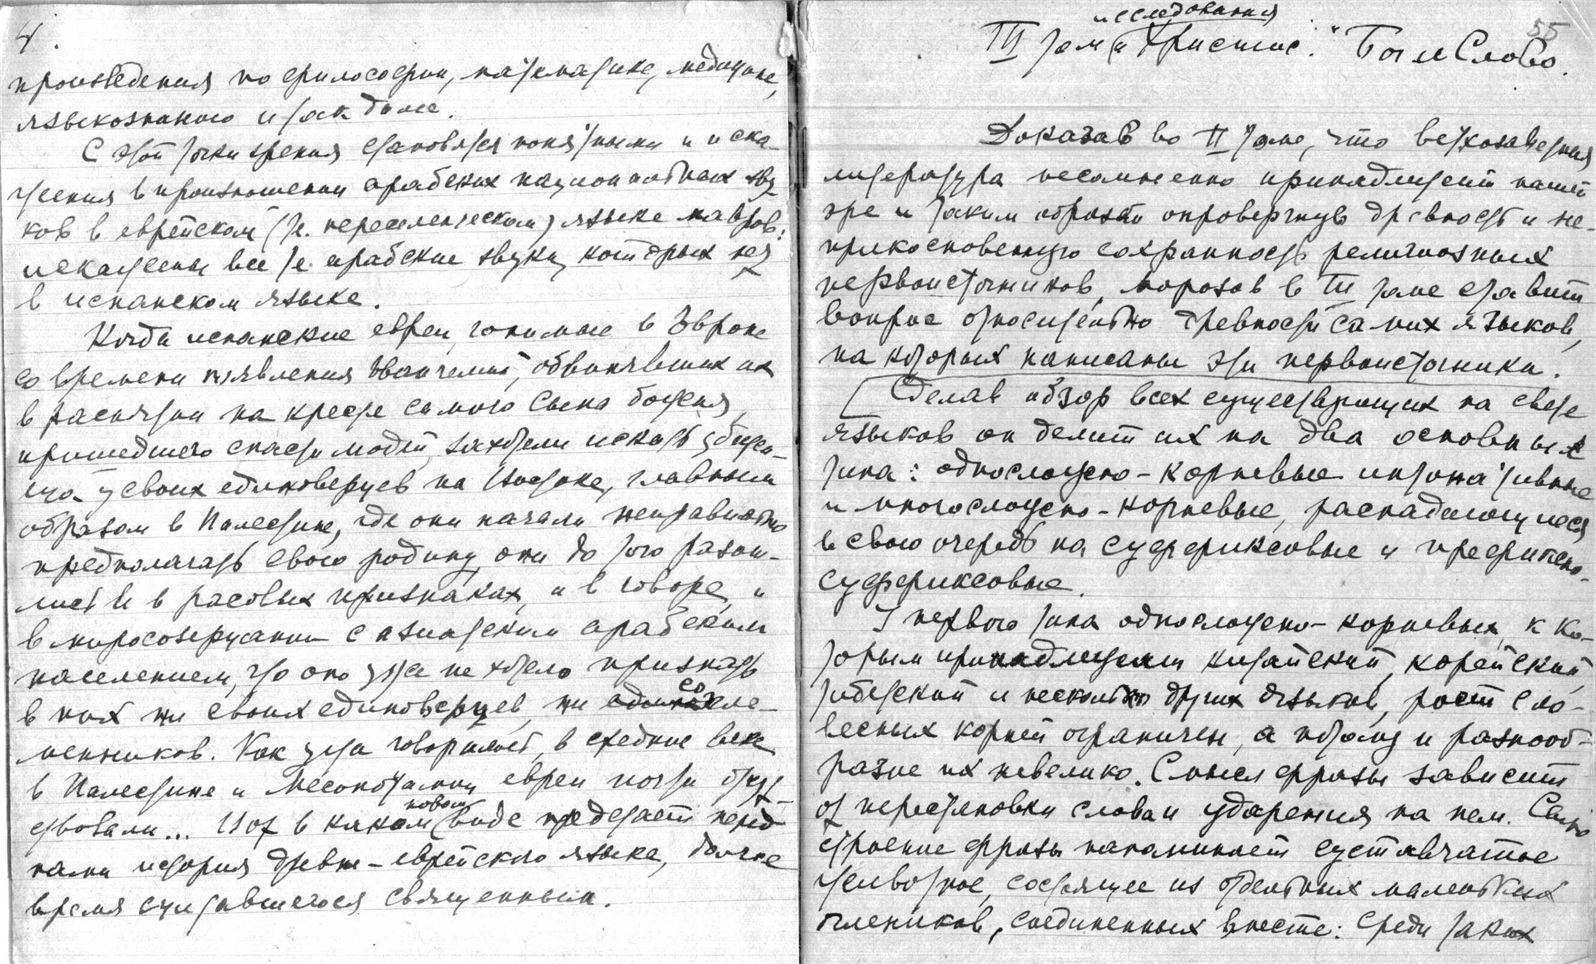 4.
произведения по философии, математике, медицине,
языкознанию и так далее.
С этой точки зрения становятся понятными и иска-
жения в произношении арабских национальных зву
ков в еврейском (т.е. переселенческом) языке мавров:
искажены все те арабские звуки, которых нет
в испанском языке.
Когда испанские евреи, гонимые в Европе
со времени появления Евангелий, обвинявших их
в распятии на кресте самого Сына божия,
пришедшего спасти людей, захотели искать убежи-
ща у своих единоверцев на Востоке, главным
образом в Палестине, где они начали неправильно
предполагать свою родину, они до того разош-
лись и в расовых признаках, и в говоре, и
в миросозерцании с азиатским арабским
населением, что оно уже не хотело признать
в них ни своих единоверцев, ни соплеменников. Как уже говорилось, в средние века
в Палестине и Месопотамии евреи почти отсут-
ствовали... Вот в каком новом виде предстаёт перед
нами история древне-еврейского языка, долгое
время считавшегося священным.
55
III том исследования "Христос." "Бог и Слово.
Доказав во II томе, что ветхозаветная
литература несомненно принадлежит нашей
эре и таким образом опровергнув древность и не-
прикосновенную сохранность религиозных
первоисточников, Морозов в III томе ставит
вопрос относительно древности самих языков,
на которых написаны эти первоисточники.
Сделав обзор всех существующих на свете
языков он делит их на два основных
типа: односложно-корневые интонативные
и многосложно-корневые, распадающиеся
в свою очередь на суффиксовые и префиксно-
суффиксовые.
У первого типа односложно-корневых, к ко-
торым принадлежит китайский, корейский,
тибетский и несколько других языков, рост сло-
весных корней ограничен, а потому и разнооб-
разие их невелико. Смысл фразы зависит
от перестановки слов и ударения на нем. Само
строение фразы напоминает суставчатое
животное, состоящее из отдельных маленьких
члеников, соединенных вместе: Среди таких